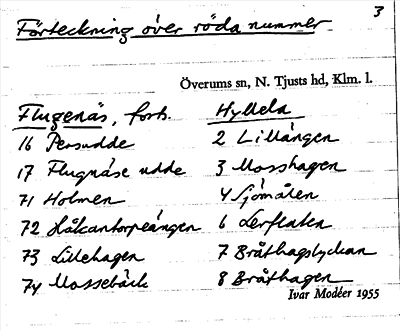 3
Förteckning över röda nummer
Överums sn, N. Tjusts hd, Klm. l.
Flugenäs, forts.
16 Persudde
17 Flugnäse udde
71 Holmen
72 Hålcantorpeängen
73 Lillehagen
74 Mossebäck
Hyllela
2 Lillängen
3 Mosshagen
4 Sjömålen
6 Lerflaten
7 Bråthagslyckan
8 Bråthagen
Ivar Modéer 1955